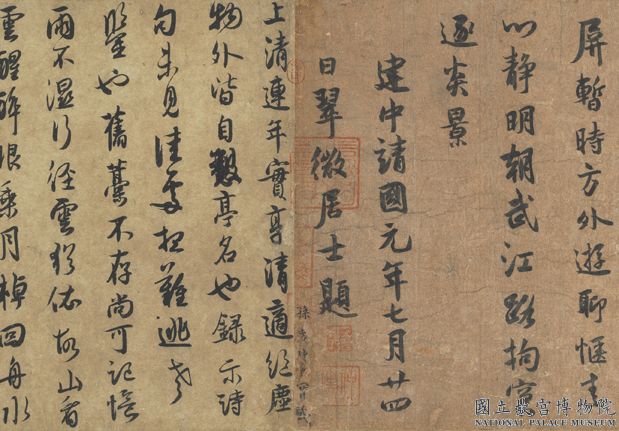 屏暫時方外遊聊愜
心靜明朝武江路拘
逐炎景
建中靖國元年七月廿四
日翠微居士題
上清連年實享清適經塵
物外諧自製亭名也錄示詩
句未見佳處極難逃老
鑒也舊藁不存尚可記憶
雨不濕行徑雲猶依故山看
雲醒醉眼乘月棹回舟水
國立故宮博物院
NATIONAL PALACE MUSEUM